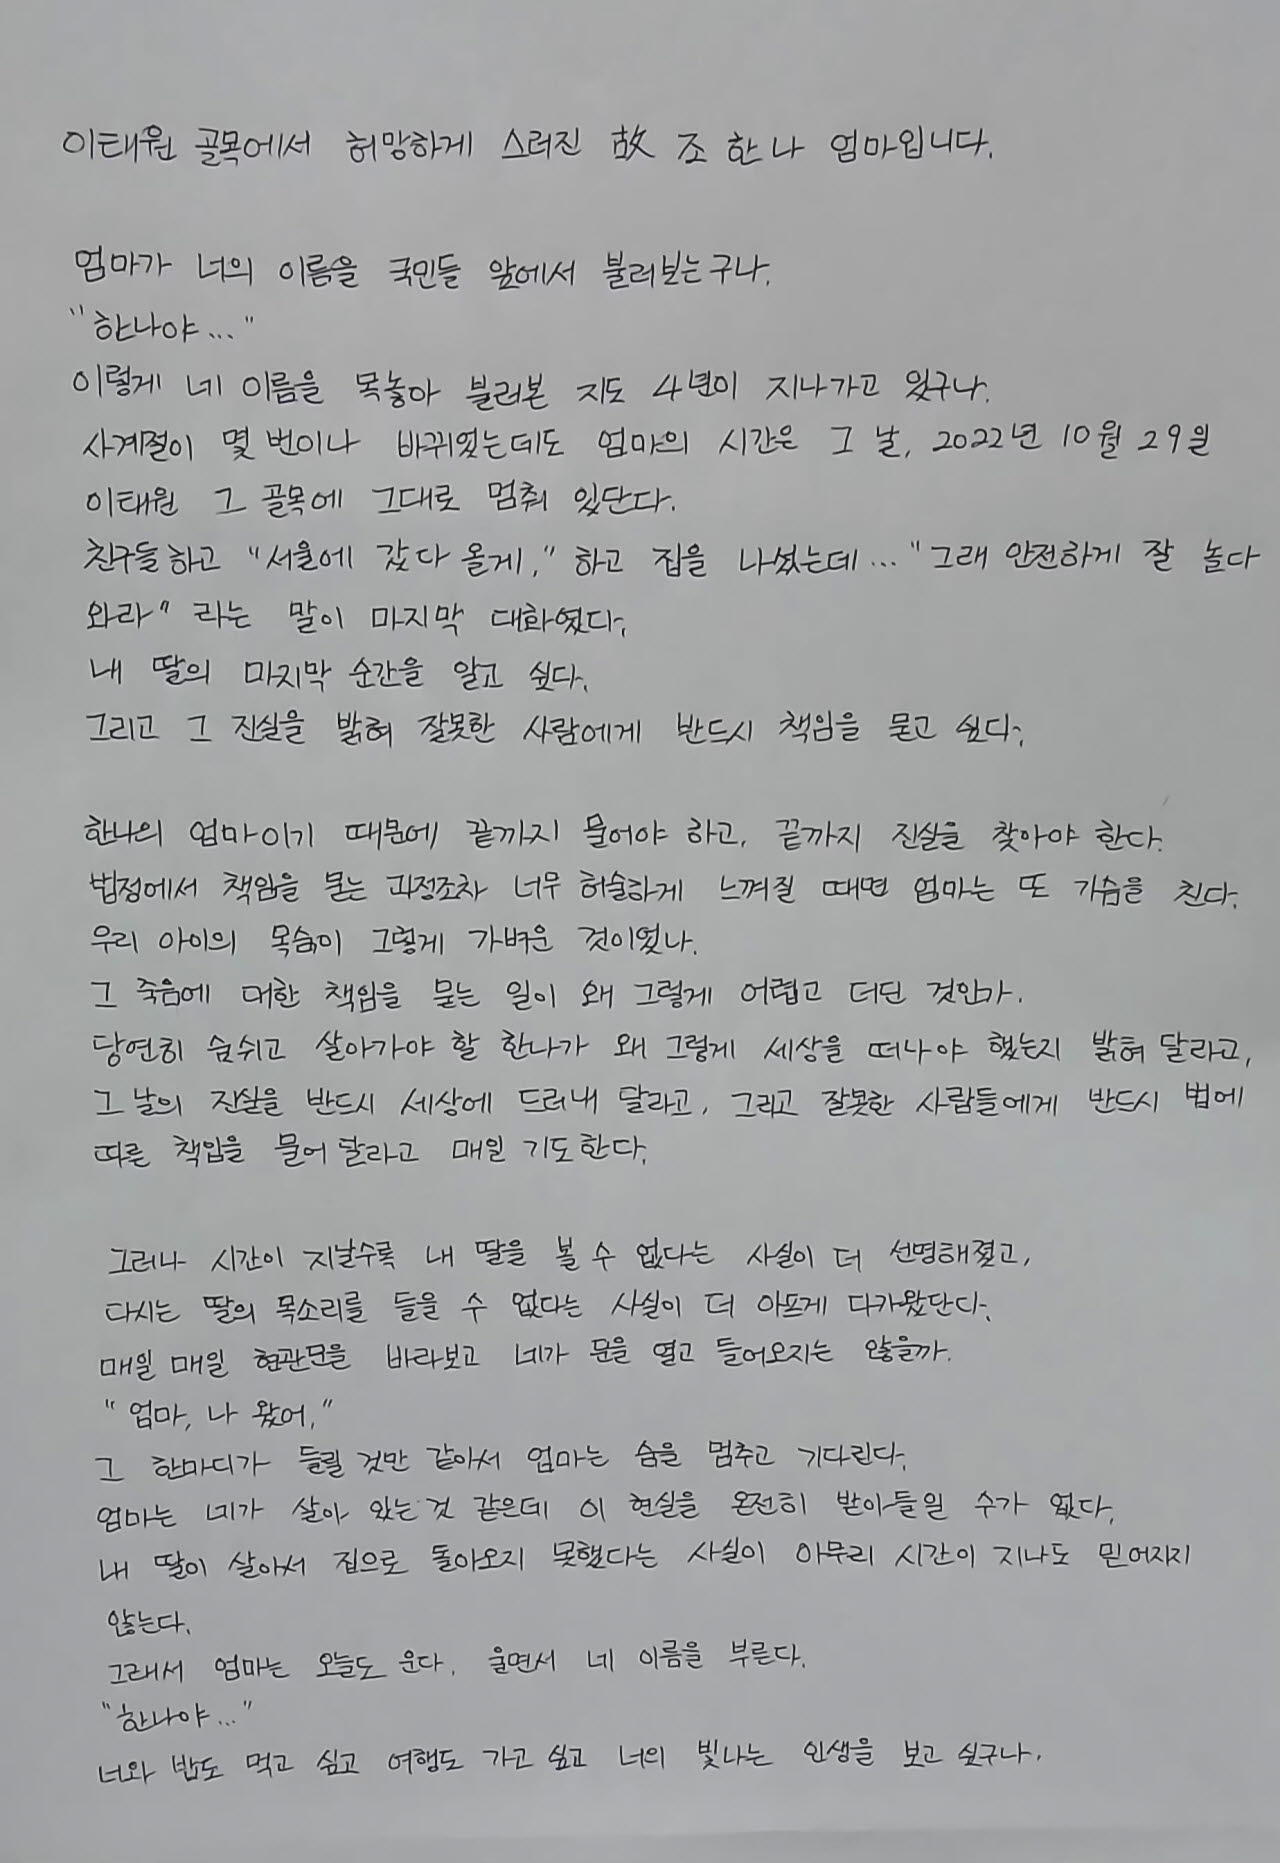 이태원 골목에서 허망하게 스러진 故 조한나 엄마입니다.
엄마가 너의 이름을 국민들 앞에서 불러보는구나.
"한나야..."
이렇게 네 이름을 목놓아 불러본 지도 4년이 지나가고 있구나.
사계절이 몇 번이나 바뀌었는데도 엄마의 시간은 그 날, 2022년 10월 29일
이태원 그 골목에 그대로 멈춰 있단다.
친구들하고 "서울에 갔다 올게," 하고 집을 나섰는데..."그래 안전하게 잘 놀다
와라" 라는 말이 마지막 대화였다.
내 딸의 마지막 순간을 알고 싶다.
그리고 그 진실을 밝혀 잘못한 사람에게 반드시 책임을 묻고 싶다.
한나의 엄마이기 때문에 끝까지 물어야 하고, 끝까지 진실을 찾아야 한다.
법정에서 책임을 묻는 과정조차 너무 허술하게 느껴질 때면 엄마는 또 가슴을 친다.
우리 아이의 목숨이 그렇게 가벼운 것이었나.
그 죽음에 대한 책임을 묻는 일이 왜 그렇게 어렵고 더딘 것인가.
당연히 숨쉬고 살아가야 할 한나가 왜 그렇게 세상을 떠나야 했는지 밝혀 달라고,
그 날의 진실을 반드시 세상에 드러내 달라고, 그리고 잘못한 사람들에게 반드시 법에
따른 책임을 물어 달라고 매일 기도한다.
그러나 시간이 지날수록 내 딸을 볼 수 없다는 사실이 더 선명해졌고,
다시는 딸의 목소리를 들을 수 없다는 사실이 더 아프게 다가왔단다.
매일 매일 현관문을 바라보고 네가 문을 열고 들어오지는 않을까.
"엄마, 나 왔어,"
그 한마디가 들릴 것만 같아서 엄마는 숨을 멈추고 기다린다.
엄마는 네가 살아 있는 것 같은데 이 현실을 온전히 받아들일 수가 없다.
내 딸이 살아서 집으로 돌아오지 못했다는 사실이 아무리 시간이 지나도 믿어지지
않는다.
그래서 엄마는 오늘도 운다. 울면서 네 이름을 부른다.
"한나야..."
너와 밥도 먹고 싶고 여행도 가고 싶고 너의 빛나는 인생을 보고 싶구나.